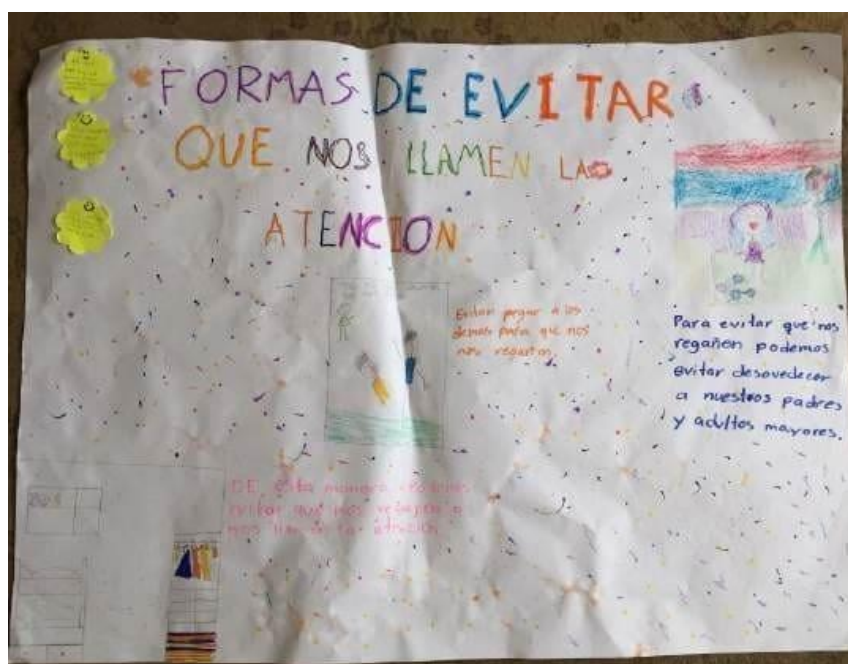 FORMAS DE EVITAR
QUE NOS LLAMEN LA
ATENCION
Evitar pegar a los
demas para que no
nos regañen.
Para evitar que nos
regañen podemos
evitar desovedecer
a nuestros padres
y adultos mayores.
DE esta manera podemos
evitar que nos regañen o
nos llamen la atencion